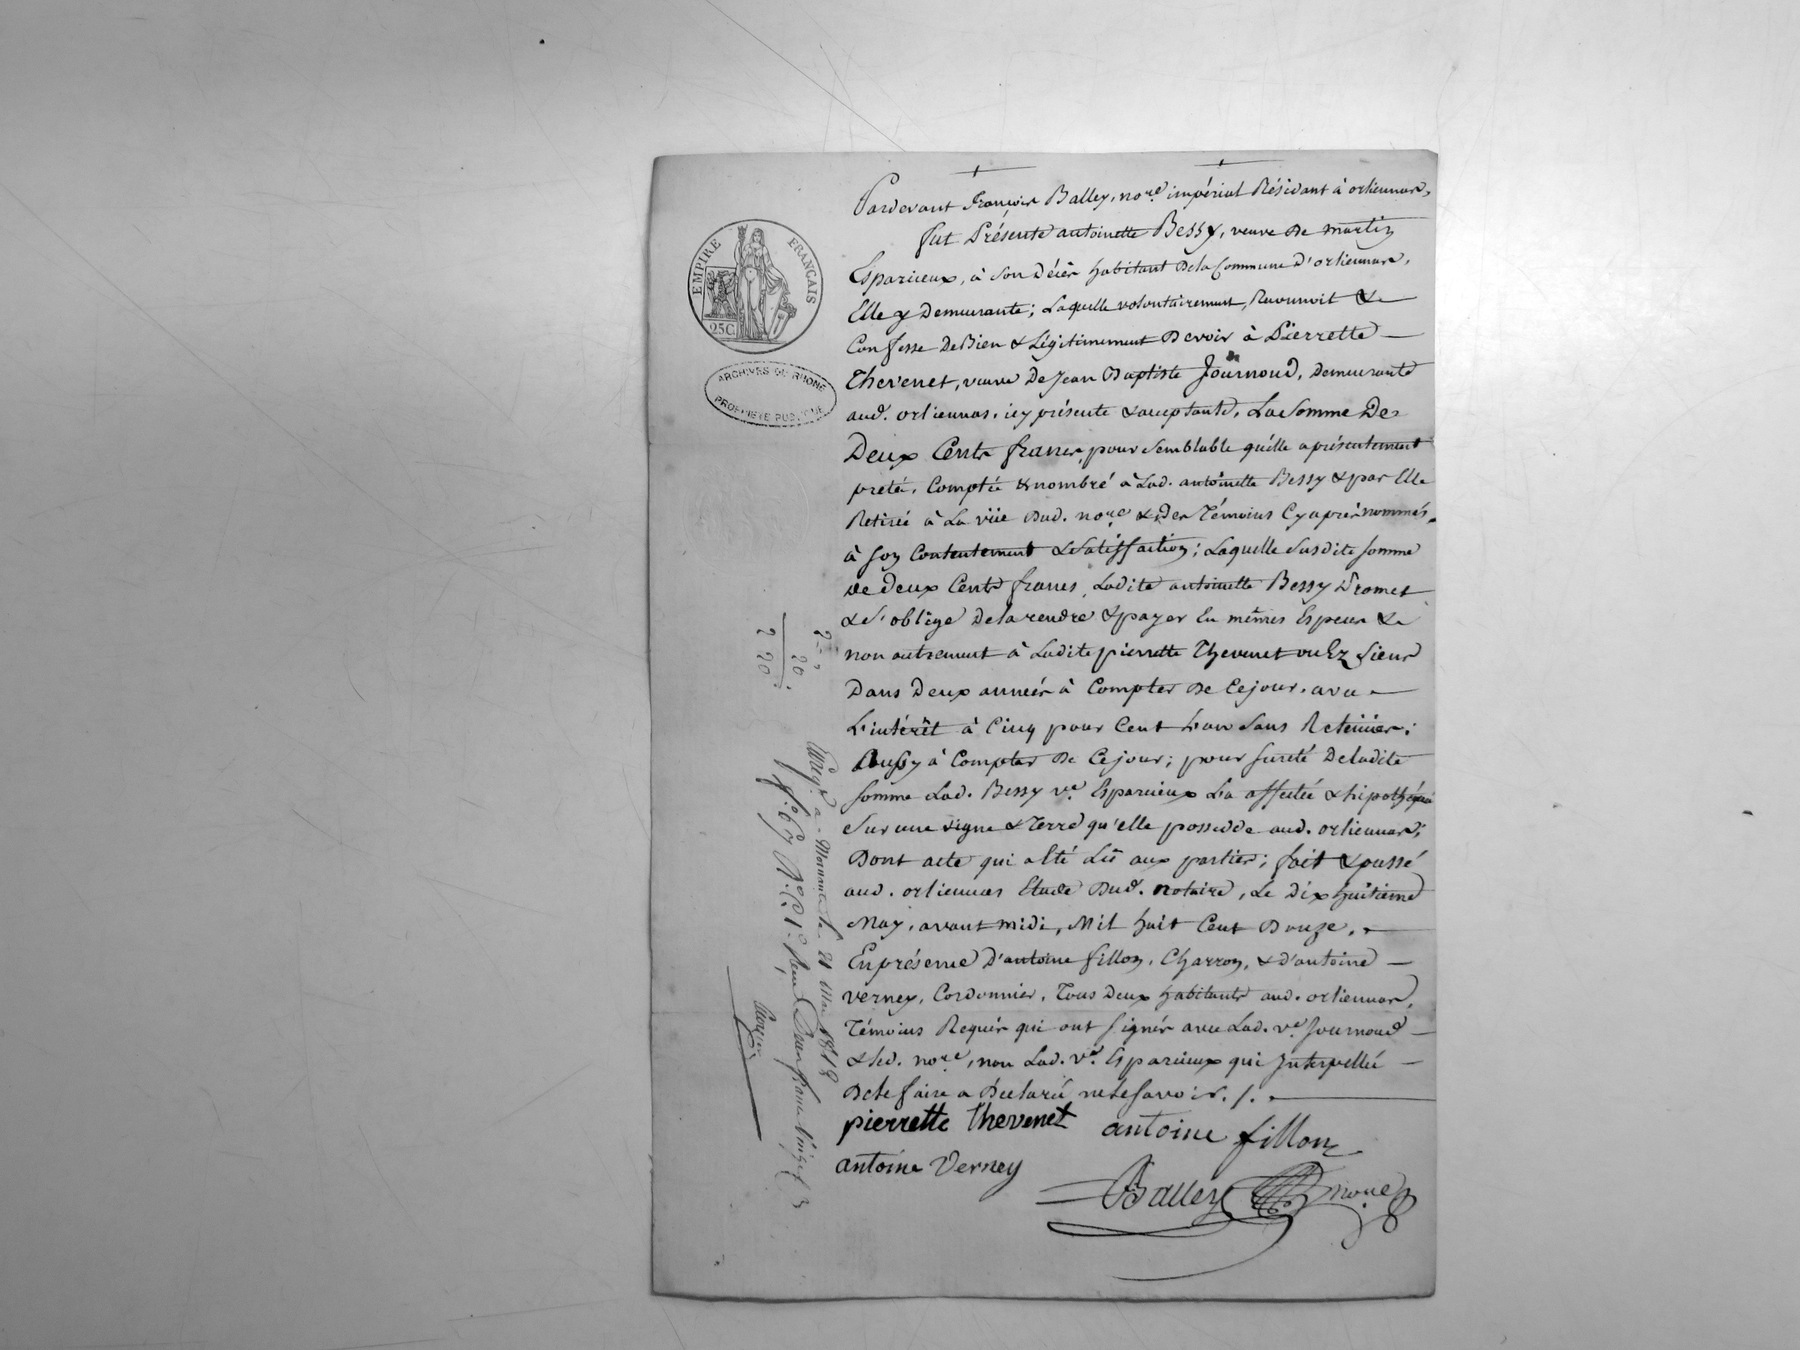 EMPIRE FRANÇAIS
25C.
ARCHIVES DU RHONE
PROPRIÉTÉ PUBLIQUE
Pardevant françois Balley, no.re impérial Résidant à orliennas,
fut Présente antoinette Bessy, veuve de martin
Esparcieux, à son décès habitant dela Commune d'orliennas,
Elle y Demeurante; Laquelle volontairement, Reconnoit &
Confesse De Bien & Légitimement Devoir à Pierrette
Thevenet, veuve De Jean Baptiste Journoud, Demeurante
aud. orliennas, icy présente & acceptante, La Somme De
Deux Cents francs, pour semblable qu'elle a présentement
preté, Comptée & nombré à Lad. antoinette Bessy & par Elle
Retirée à La vüe Dud. no.re & des Témoins Cyaprès nommés,
à son Contentement & Satisfaction; Laquelle Susdite somme
de Deux Cents francs, Ladite antoinette Bessy Promet
& s'oblige Dela rendre & payer En mêmes Espèces &
non autrement à Ladite pierrette Thevenet ou Ez Siens
Dans Deux années à Compter De Cejour, avec
L'intérêt à Cinq pour Cent L'an Sans Retenüe;
Aussy à Compter De Cejour; pour sureté Deladite
somme Lad. Bessy v.e Esparcieux L'a affectée & hipothéquée
Sur une vigne & Terre qu'elle possedde aud. orliennas;
Dont acte qui a Eté Lû aux parties; fait & passé
aud. orliennas Etude Dud. notaire, Le Dix huitieme
May, avant midi, Mil huit Cent Douze.
En présence D'antoine fillon, Charron, & d'antoine
verney, Cordonnier, Tous Deux habitants aud. orliennas,
Témoins Requis qui ont signés avec Lad. v.e Journoud
& led. no.re, non Lad. v.e Esparcieux qui Interpellée
De le faire a Déclaré ne le savoir./.
pierrette thevenet antoine fillon
antoine Verney
Balley no.re
2 "
20
2 20
Enreg.é à Mornant le 21 Mai 1812
f.o 67 R.o C. 1.e Reçu Deux francs vingt c